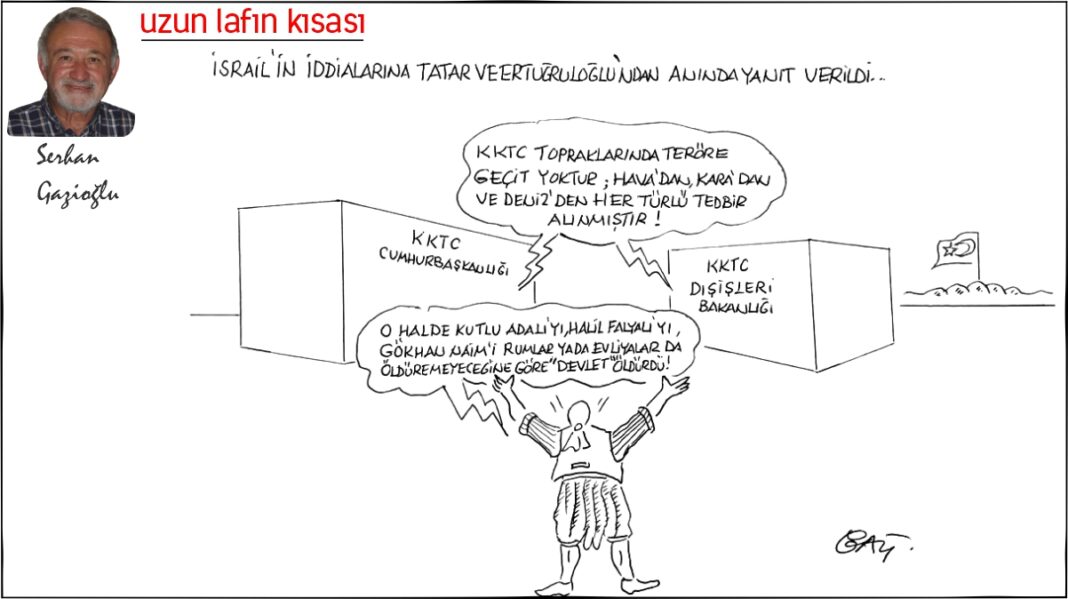 uzun lafın kısası
Serhan
Gazioğlu
İSRAİL'İN İDDİALARINA TATAR VE ERTUĞRULOĞLU'NDAN ANINDA YANIT VERİLDİ...
KKTC TOPRAKLARINDA TERÖRE
GEÇİT YOKTUR; HAVA'DAN, KARA'DAN
VE DENİZ'DEN HER TÜRLÜ TEDBİR
ALINMIŞTIR!
KKTC
CUMHURBAŞKANLIĞI
KKTC
DIŞİŞLERİ
BAKANLIĞI
O HALDE KUTLU ADALI'YI, HALİL FALYALI'YI,
GÖKHAN NAİM'İ RUMLAR YADA EVLİYALAR DA
ÖLDÜREMEYECEĞİNE GÖRE "DEVLET" ÖLDÜRDÜ!